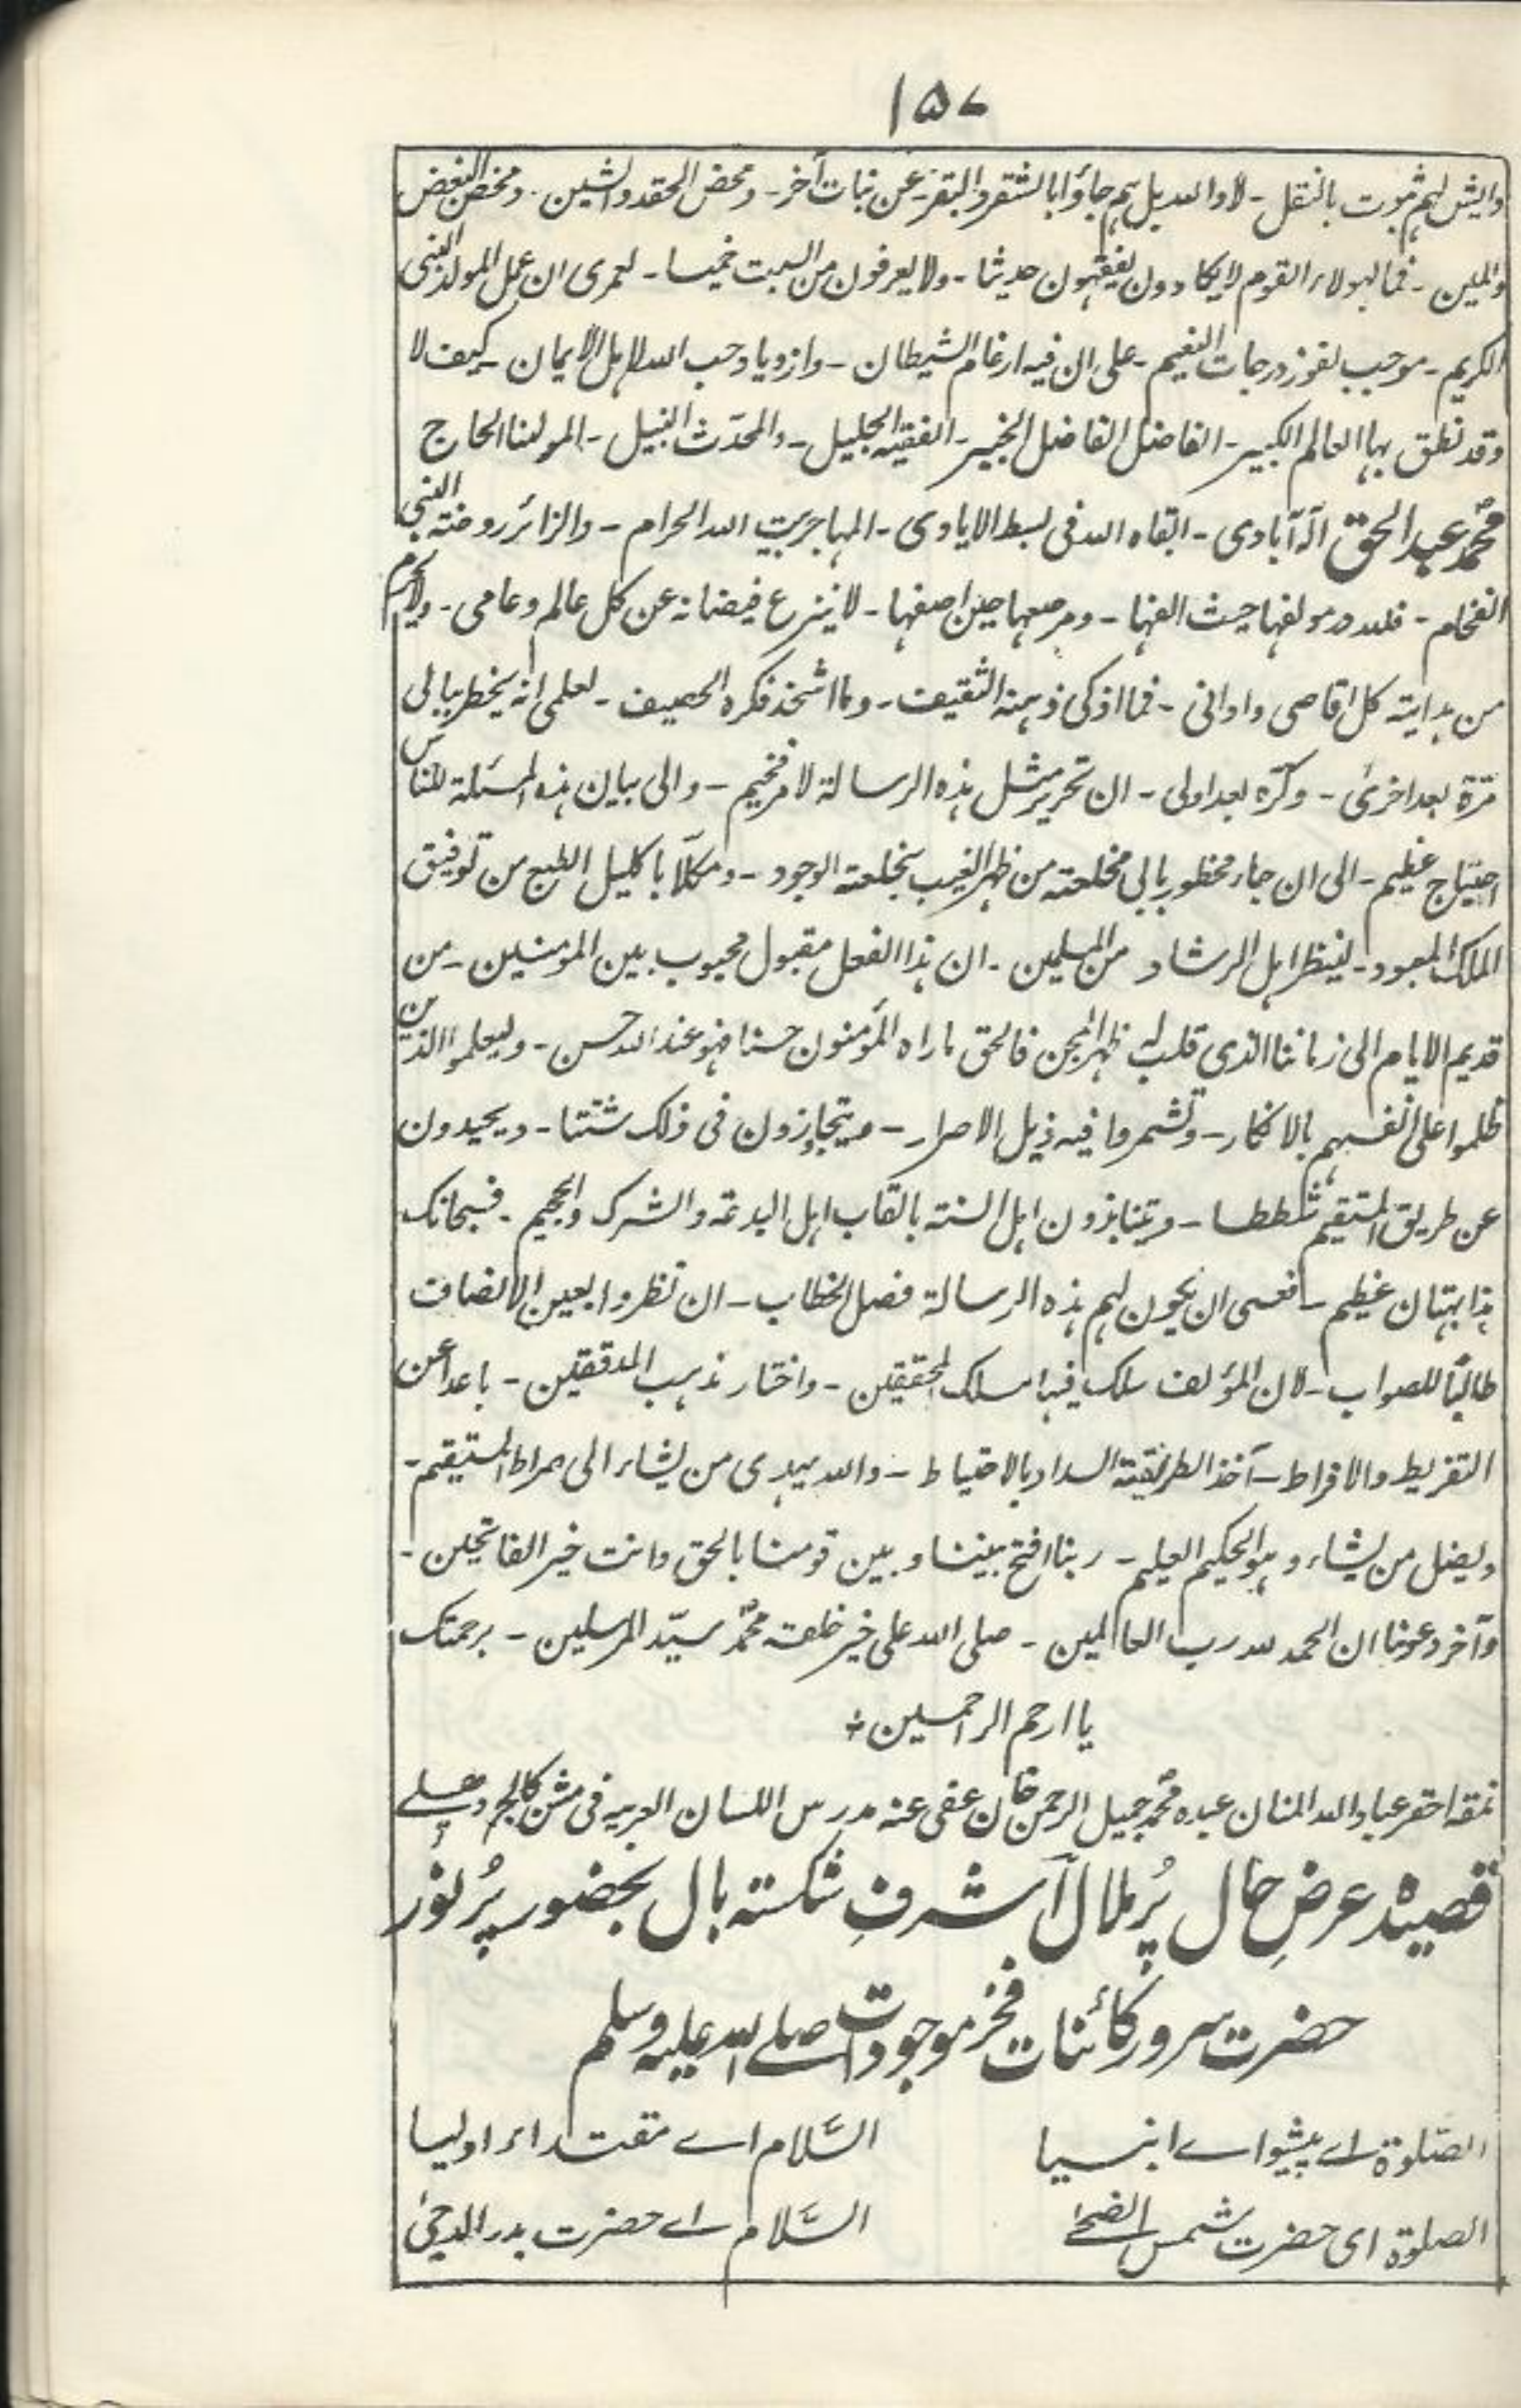 ۱۵۷
وایش لہم ثبوت بالنقل ۔ لا واللہ بل ہم جاؤا بالشقر والبقر عن نبات آخر ۔ ومحض الحقد والشین ۔ ومحض البغض
والمین ۔ فما لہولاء القوم لا یکادون یفقہون حدیثا ۔ ولا یعرفون من السبت خمیسا ۔ لعمری ان عمل المولد النبی
الکریم ۔ موجب لفوز درجات النعیم ۔ علی ان فیہ ارغام الشیطان ۔ وازدیاد حب اللہ لاہل الایمان ۔ کیف لا
وقد نطق بہا العالم الکبیر ۔ الفاضل الفاضل الخبیر ۔ الفقیہ الجلیل ۔ والمحدّث النبیل ۔ المولٰنا الحاج
محمد عبد الحق الہ آبادی ۔ ابقاہ اللہ فی بسط الایادی ۔ المہاجر بیت اللہ الحرام ۔ والزائر روضۃ النبی
الفخام ۔ فللہ در مولفہا حیث الفہا ۔ ومرصعہا حین اصفہا ۔ لا ینزع فیضانہ عن کل عالم وعامی ۔ ولا یحرم
من ہدایتہ کل اقاصی وادانی ۔ فما اذکی ذہنہ الثقیف ۔ وما اشحذ فکرہ الحصیف ۔ لعلمی انہ یخطر ببالی
مرّۃ بعد اخریٰ ۔ وکرّۃ بعد اولی ۔ ان تحریر مثل ہذہ الرسالۃ لامر فخیم ۔ والی بیان ہذہ المسئلۃ للناس
احتیاج عظیم ۔ الی ان جاء مخطور بالی مخلعتہ من ظہر الغیب بخلعتہ الوجود ۔ ومکلّلا باکلیل الطبع من توفیق
الملک المعبود ۔ لینظر اہل الرشاد من المسلمین ۔ ان ہذا الفعل مقبول محبوب بین المومنین ۔ من
قدیم الایام الی زماننا الذی قلب لہ ظہر المجن فالحق ما راہ المؤمنون حسنا فہو عند اللہ حسن ۔ ولیعلموا الذین
ظلموا علی انفسہم بالانکار ۔ وتشمروا فیہ ذیل الاصرار ۔ ویتجاوزون فی ذلک شتتا ۔ ویحیدون
عن طریق المستقیم شططا ۔ ویتنابزون اہل السنۃ بالقاب اہل البدعۃ والشرک والجحیم ۔ فسبحانک
ہذا بہتان عظیم ۔ فعسی ان یکون لہم ہذہ الرسالۃ فصل الخطاب ۔ ان نظروا بعین الانصاف
طالبًا للصواب ۔ لان المؤلف سلک فیہا مسلک المحققین ۔ واختار مذہب المدققین ۔ باعدا عن
التفریط والافراط ۔ آخذ الطریقتہ السداد بالاحتیاط ۔ واللہ یہدی من یشاء الی صراط المستقیم ۔
ویضل من یشاء وہو الحکیم العلیم ۔ ربنا افتح بیننا وبین قومنا بالحق وانت خیر الفاتحین ۔
وآخر دعونا ان الحمد للہ رب العالمین ۔ صلی اللہ علی خیر خلقہ محمد سیّد المرسلین ۔ برحمتک
یا ارحم الراحمین
نمقہ احقر عباد اللہ المنان عبدہ محمد جمیل الرحمن خان عفی عنہ مدرس اللسان العربیہ فی مشن کالج دہلے
قصیدہ عرضِ حال پُر ملال آشرفِ شکستہ بال بحضور پُر نور
حضرت سرور کائنات فخر موجودات صلے اللہ علیہ وسلم
الصّلوۃ اے پیشواے انبیا السَّلام اے مقتداء اولیا
الصلوۃ ای حضرت شمس الضحےٰ السَّلام اے حضرت بدر الدجیٰ